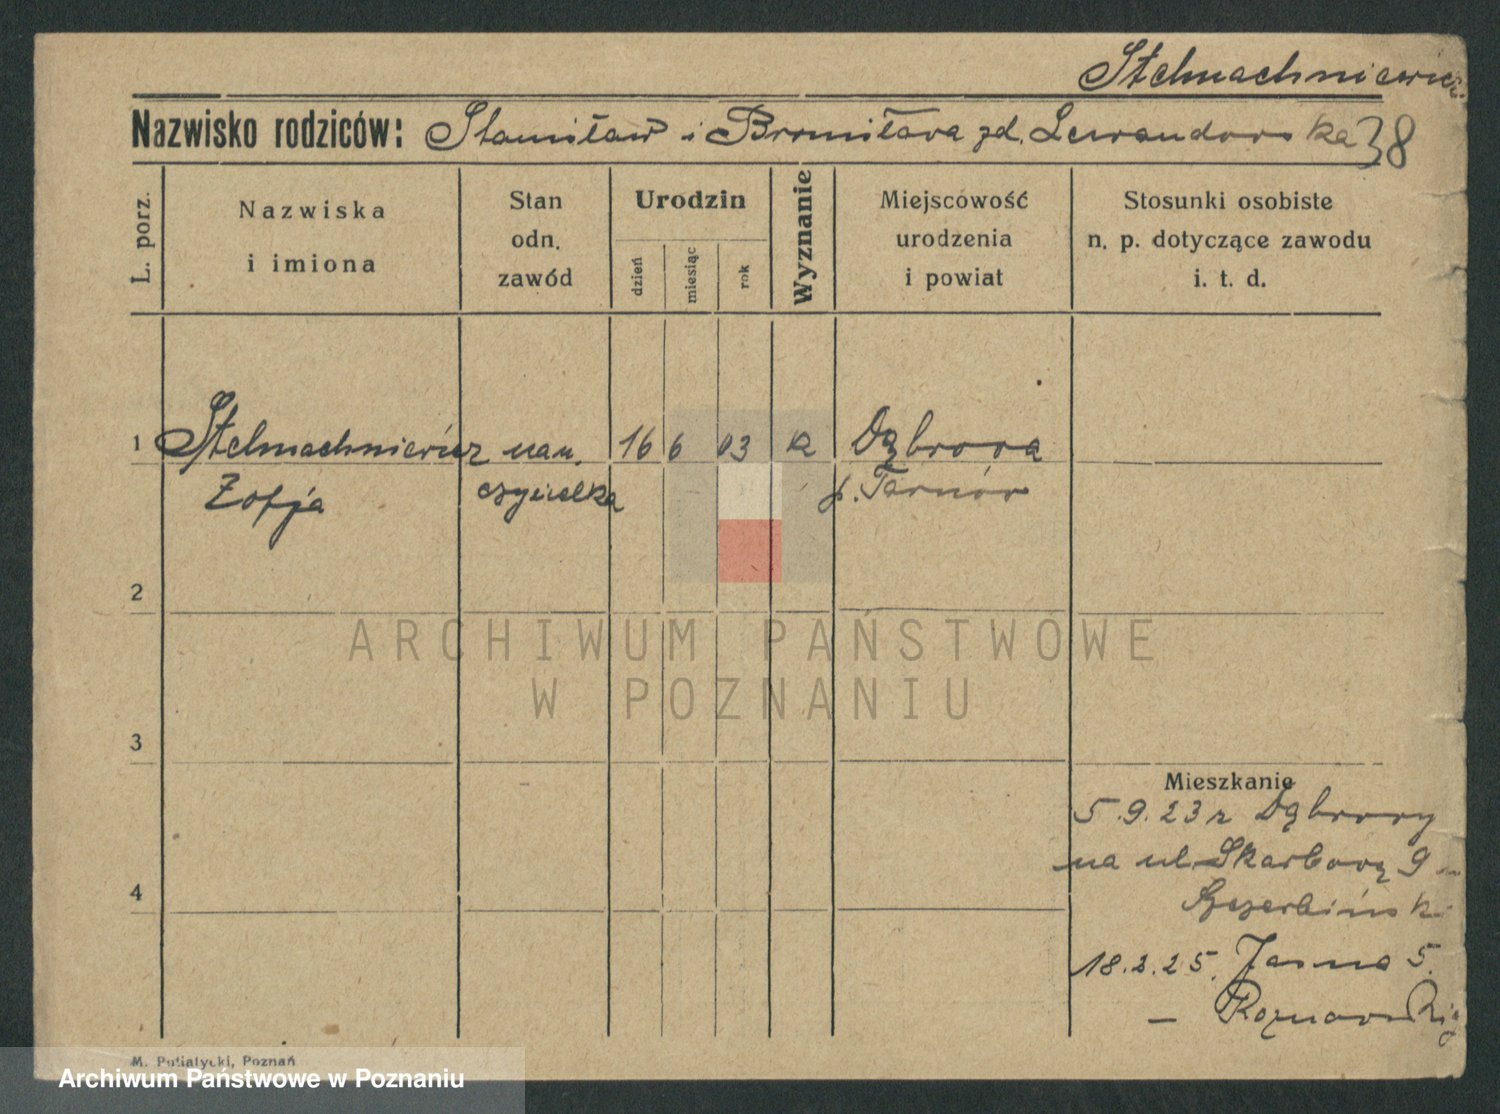 Stelmachniewicz
Nazwisko rodziców: Stanisław i Bronisława zd. Lewandowska 38
L. porz.
Nazwiska
i imiona
Stan
odn.
zawód
Urodzin
dzień
miesiąc
rok
Wyznanie
Miejscowość
urodzenia
i powiat
Stosunki osobiste
n. p. dotyczące zawodu
i. t. d.
1 Stelmachniewicz nau. 16 6 03 k Dąbrowa
Zofja czycielka p. Tarnów
2
ARCHIWUM PAŃSTWOWE
W POZNANIU
3
Mieszkanie
5.9.23 z Dąbrowy
na ul Skarbową 9
4
Szczerbiński
18.2.25. Jasna 5.
M. Putiatycki, Poznań
Archiwum Państwowe w Poznaniu